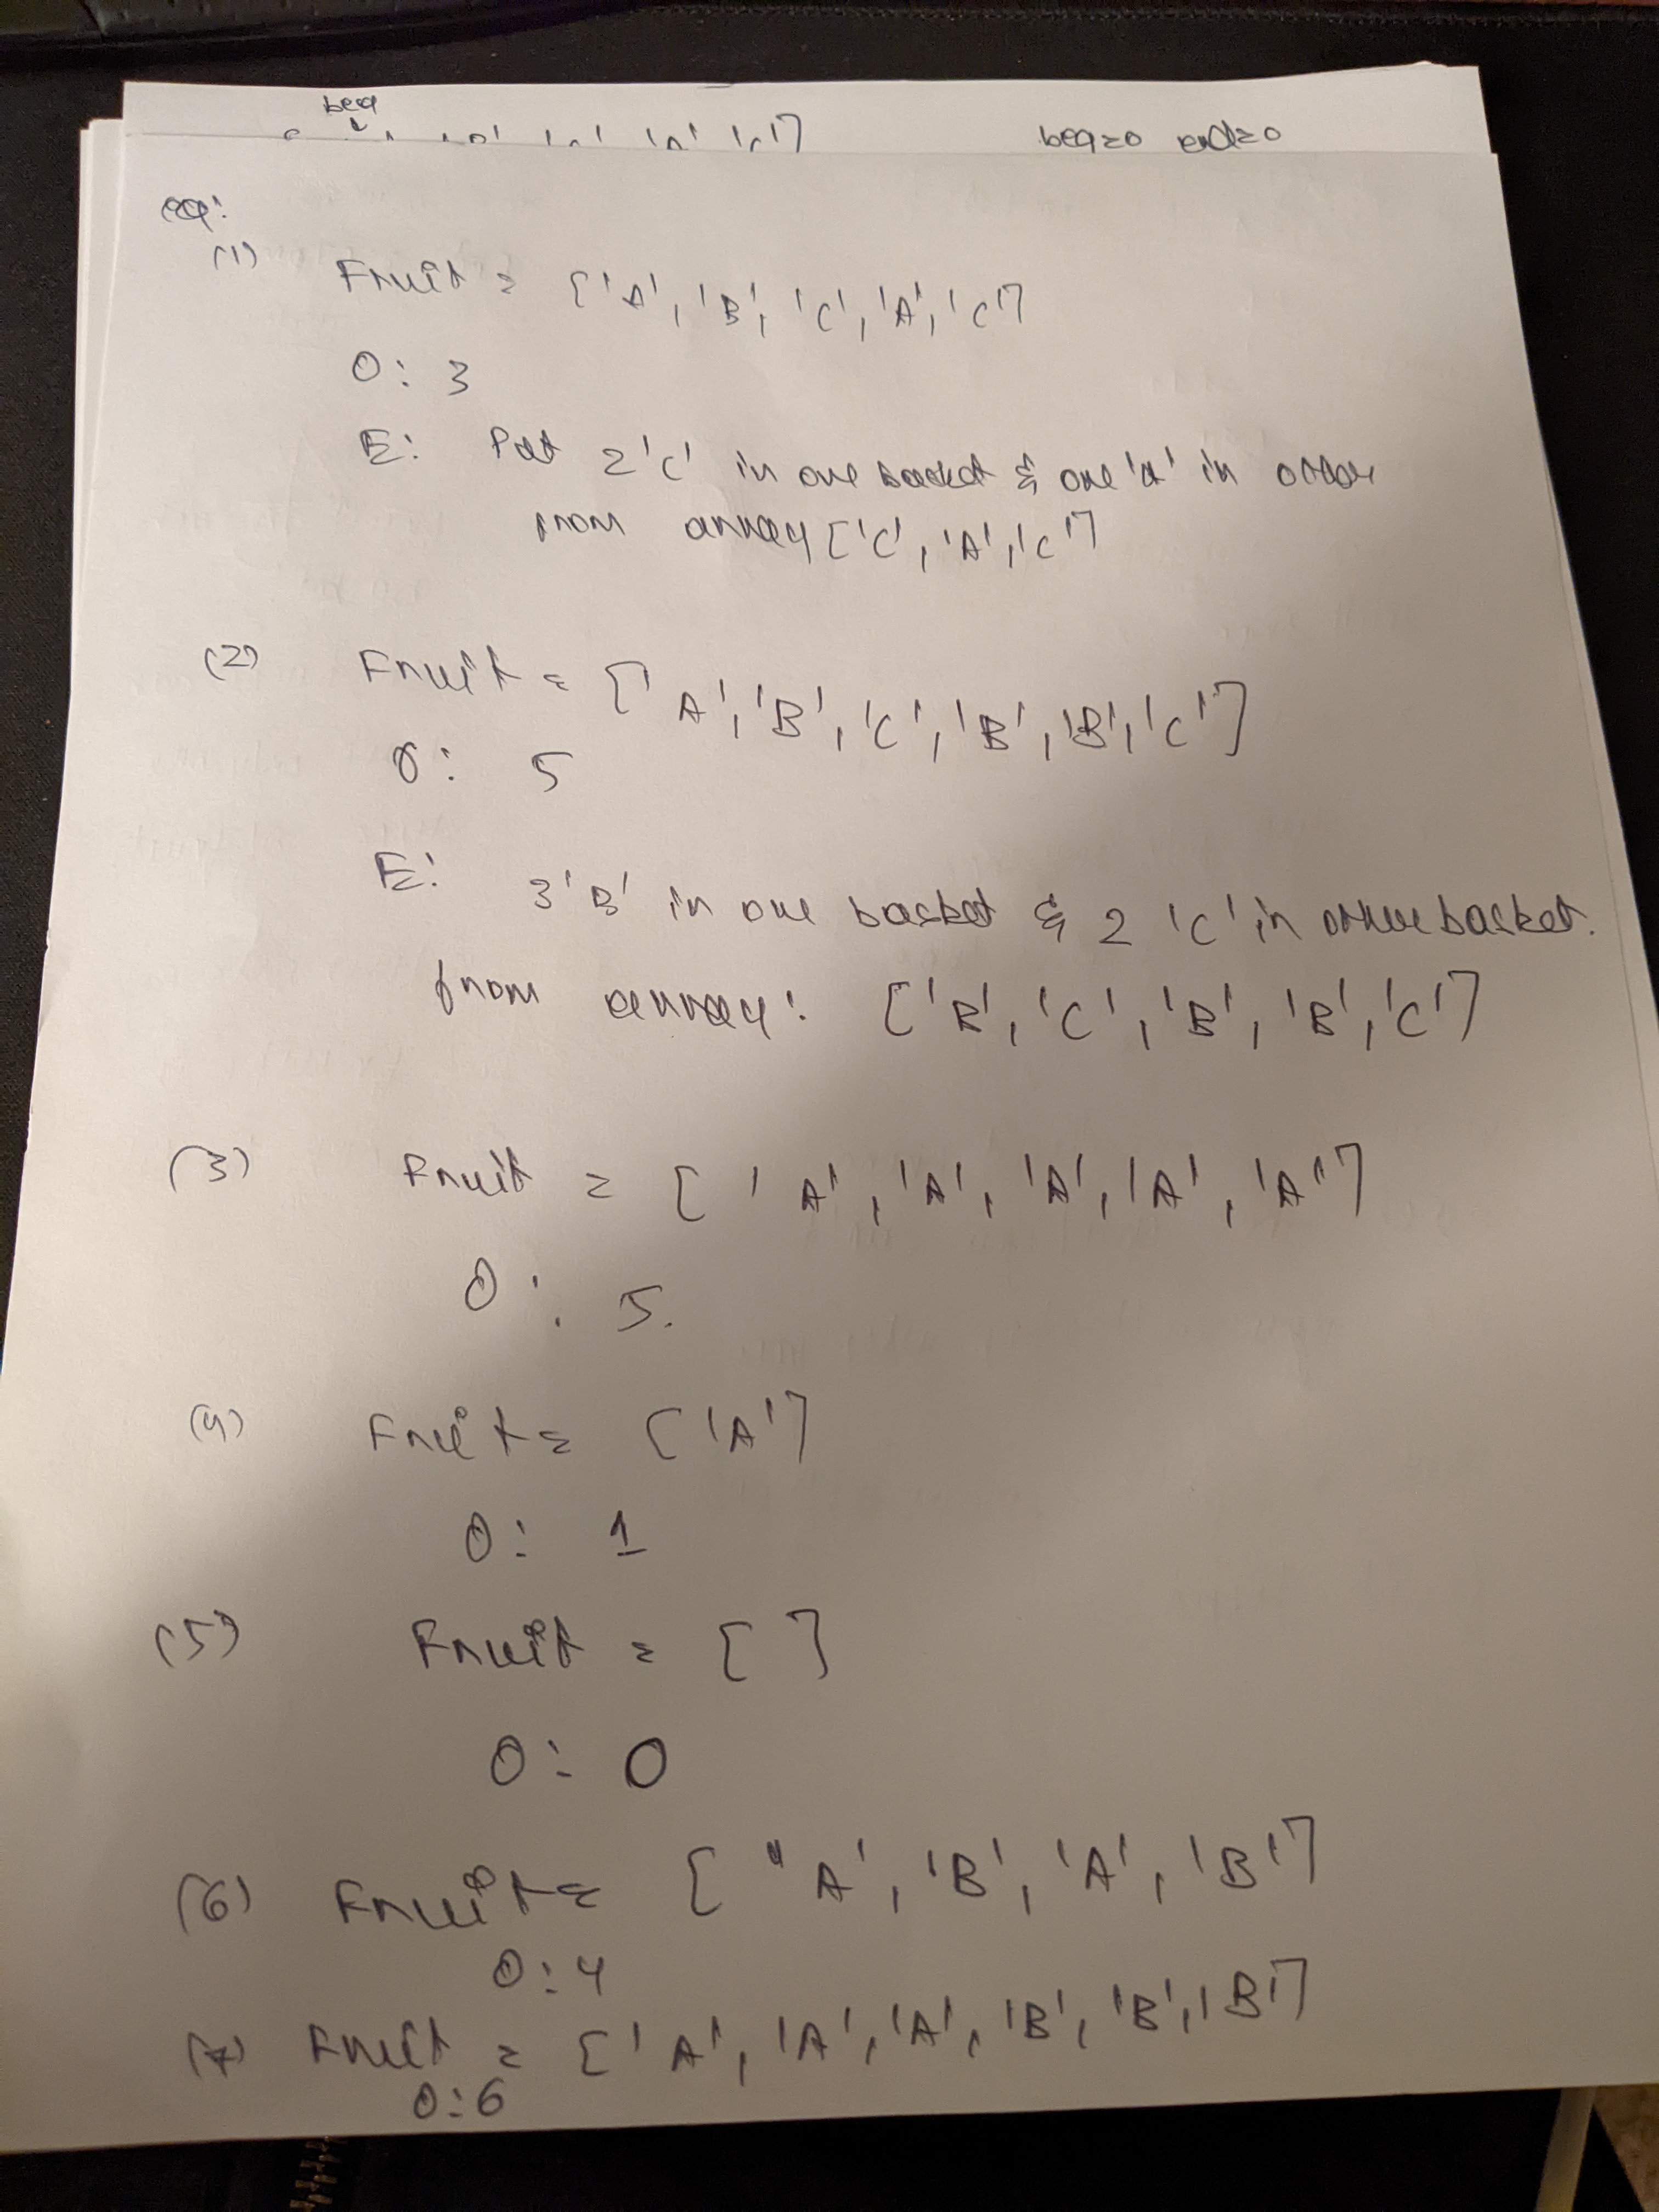 beg
beg=0 end=0
eg:
(1) Fruit = ['A', 'B', 'C', 'A', 'C']
O: 3
E: Put 2 'C' in one basket & one 'A' in other
from array ['C', 'A', 'C']
(2) Fruit = ['A', 'B', 'C', 'B', 'B', 'C']
O: 5
E: 3 'B' in one basket & 2 'C' in other basket.
from array: ['B', 'C', 'B', 'B', 'C']
(3) Fruit = ['A', 'A', 'A', 'A', 'A']
O: 5.
(4) Fruit = ['A']
O: 1
(5) Fruit = [ ]
O: 0
(6) Fruit = ['A', 'B', 'A', 'B']
O: 4
(7) Fruit = ['A', 'A', 'A', 'B', 'B', 'B']
O: 6